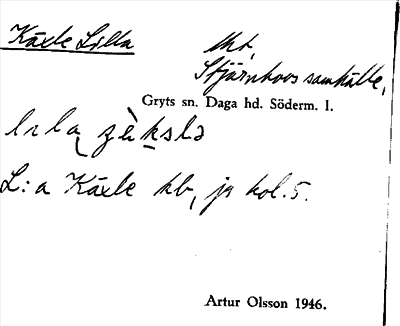 Käxle Lilla
Stjärnhovs samhälle,
Gryts sn. Daga hd. Söderm. l.
L:a Käxle hb, jr kol. 5.
Artur Olsson 1946.